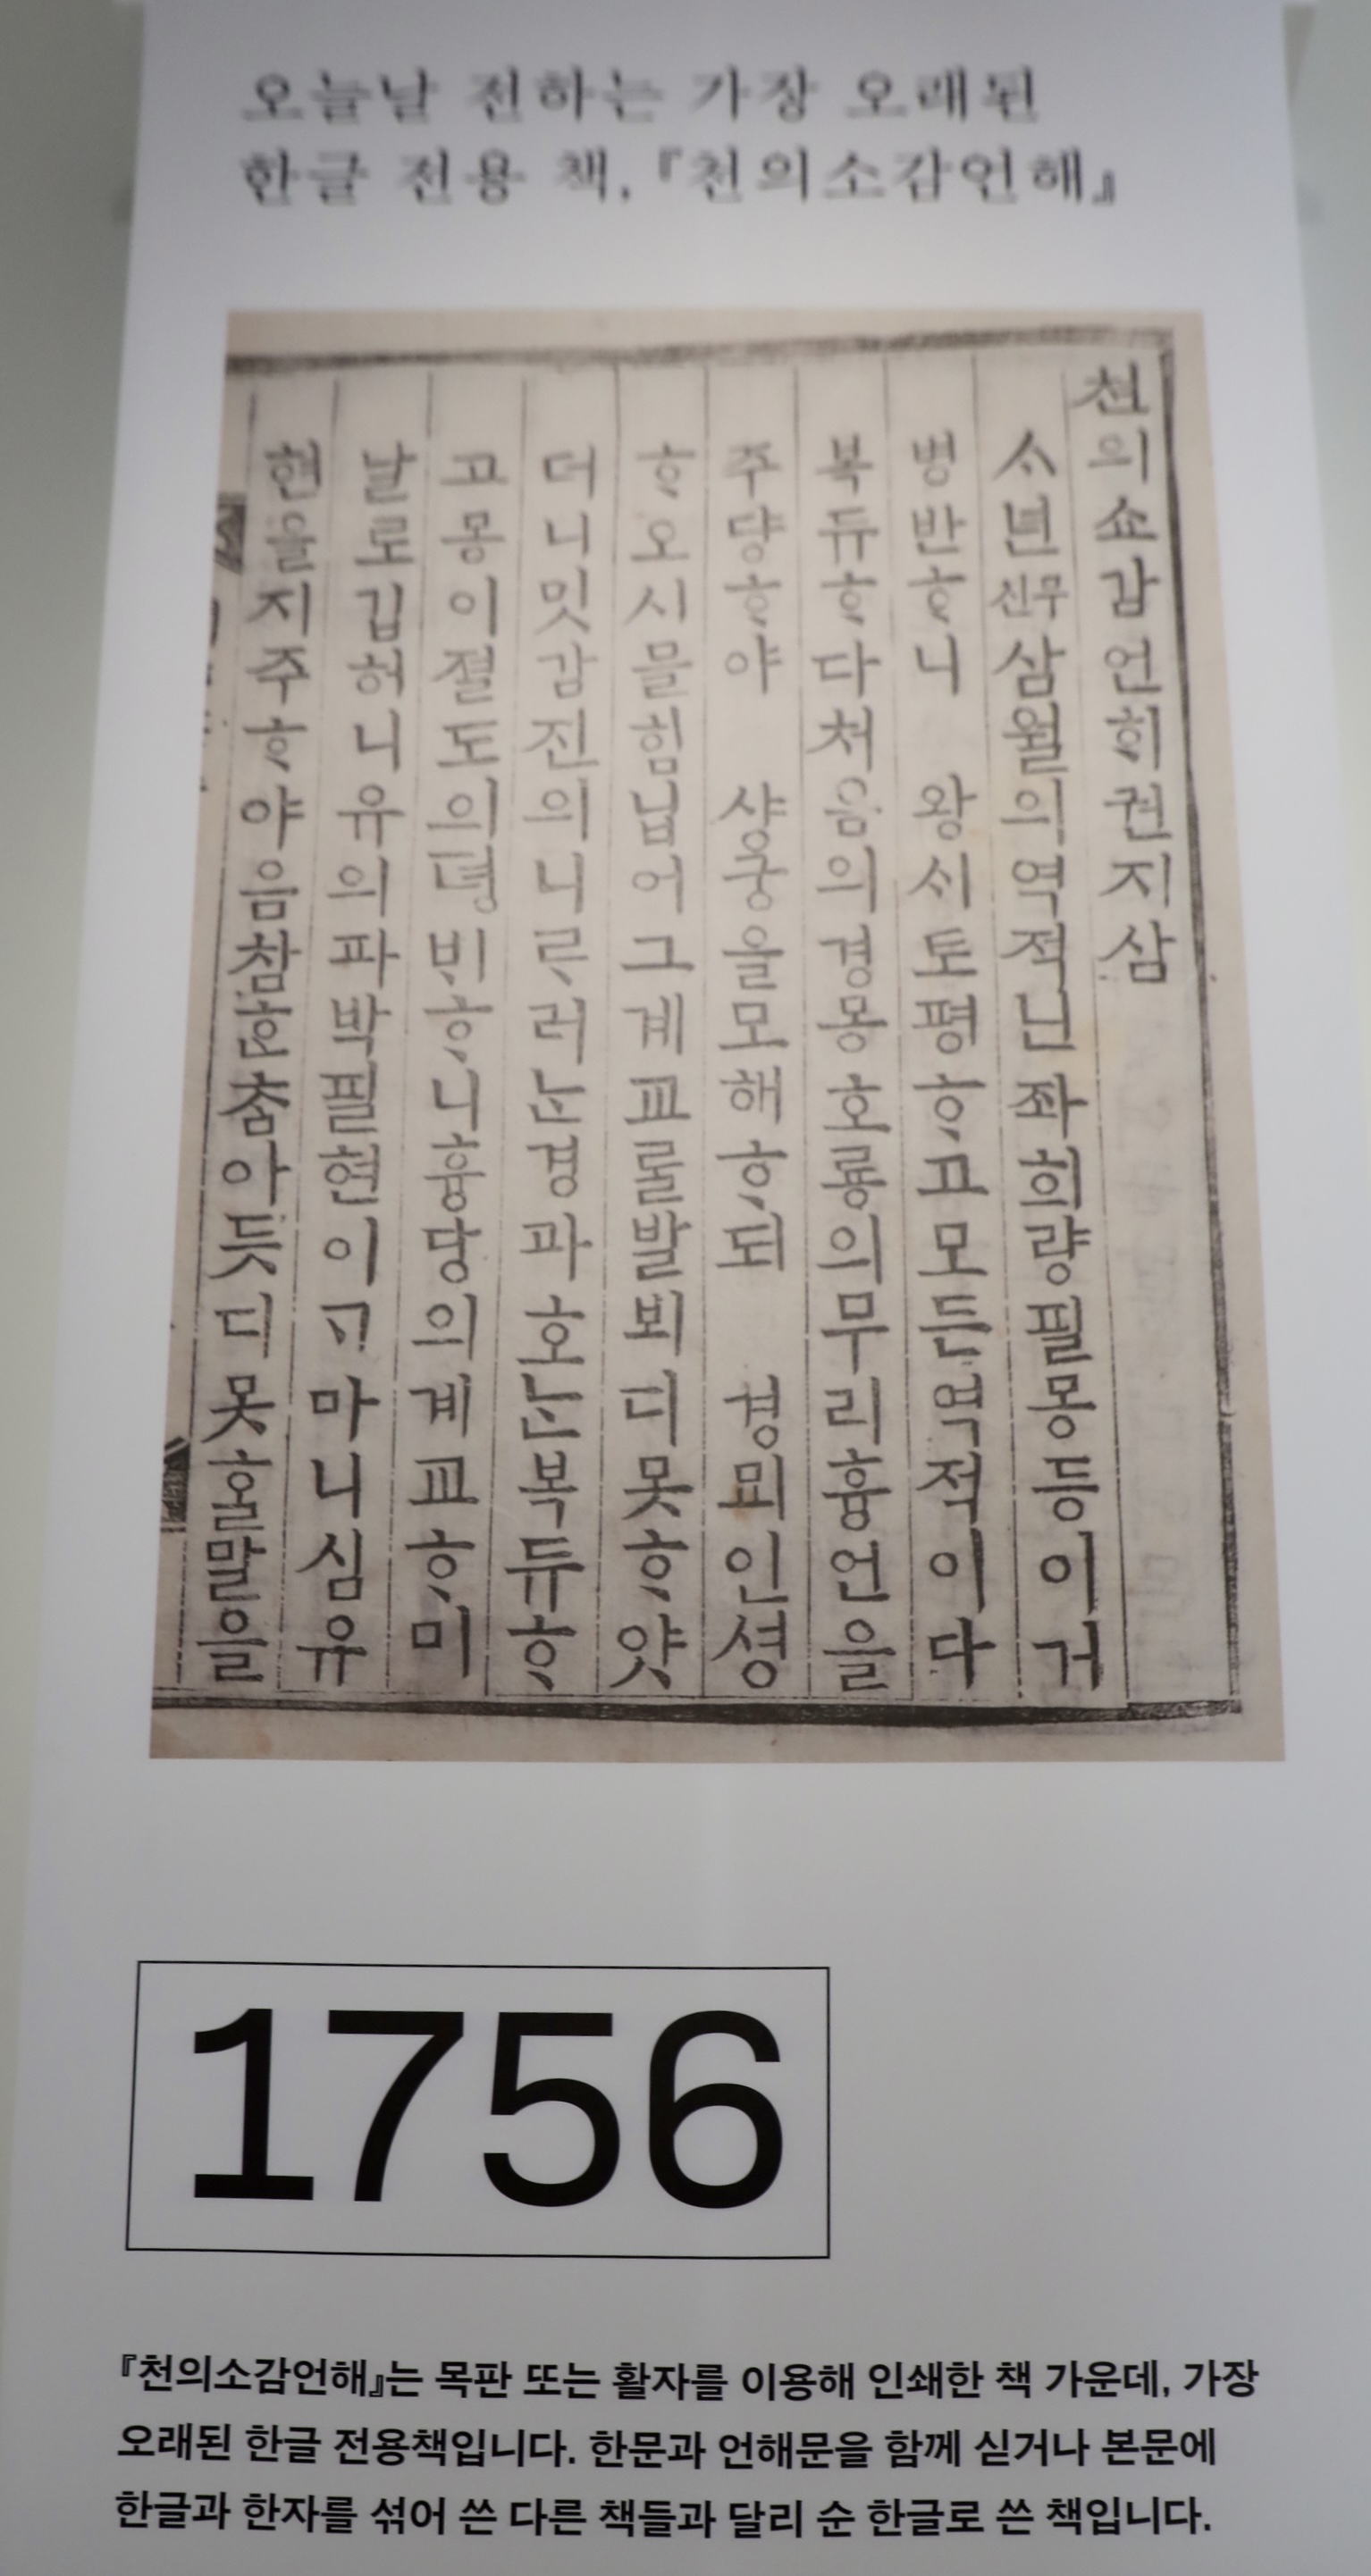 오늘날 전하는 가장 오래된
한글 전용 책, 『천의소감언해』
천의쇼감언ᄒᆡ권지삼
ᄉᆞ년신무삼월의역적닌좌희량필몽등이거
병반ᄒᆞ니 왕ᄉᆡ토평ᄒᆞ고모든역적이다
복듀ᄒᆞ다처음의경몽호룡의무리흉언을
주댱ᄒᆞ야 샹궁을모해ᄒᆞ되 경묘인셩
ᄒᆞ오시믈힘닙어그계교ᄅᆞᆯ발뵈디못ᄒᆞ얏
더니밋감진의니ᄅᆞ러ᄂᆞᆫ경과호ᄂᆞᆫ복듀ᄒᆞ
고몽이졀도의뎡ᄇᆡᄒᆞ니흉당의계교ᄒᆞ미
날로깁허니유의파박필현이ᄀᆞ마니심유
현을지주ᄒᆞ야음참ᄒᆞᆫ춤아듯디못ᄒᆞᆯ말을
1756
『천의소감언해』는 목판 또는 활자를 이용해 인쇄한 책 가운데, 가장
오래된 한글 전용책입니다. 한문과 언해문을 함께 싣거나 본문에
한글과 한자를 섞어 쓴 다른 책들과 달리 순 한글로 쓴 책입니다.